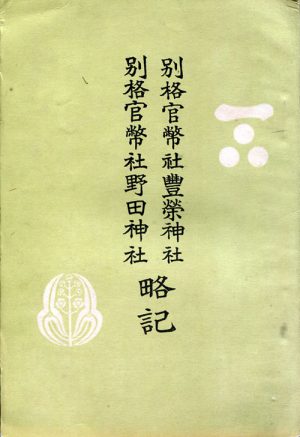 別格官幣社豐榮神社
別格官幣社野田神社
略記